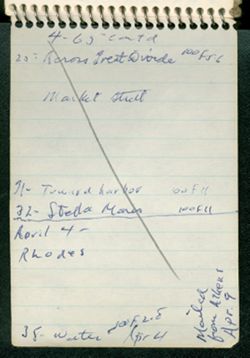 4-65-contd
25- Across Great Divide 100 F5.6
Market Street
31- Toward harbor 100 F11
32- Stella Maris 100 F11
April 4-
Rhodes
35- Water 100 F 2.8
Apr 4
Mailed
from Athens
Apr. 9